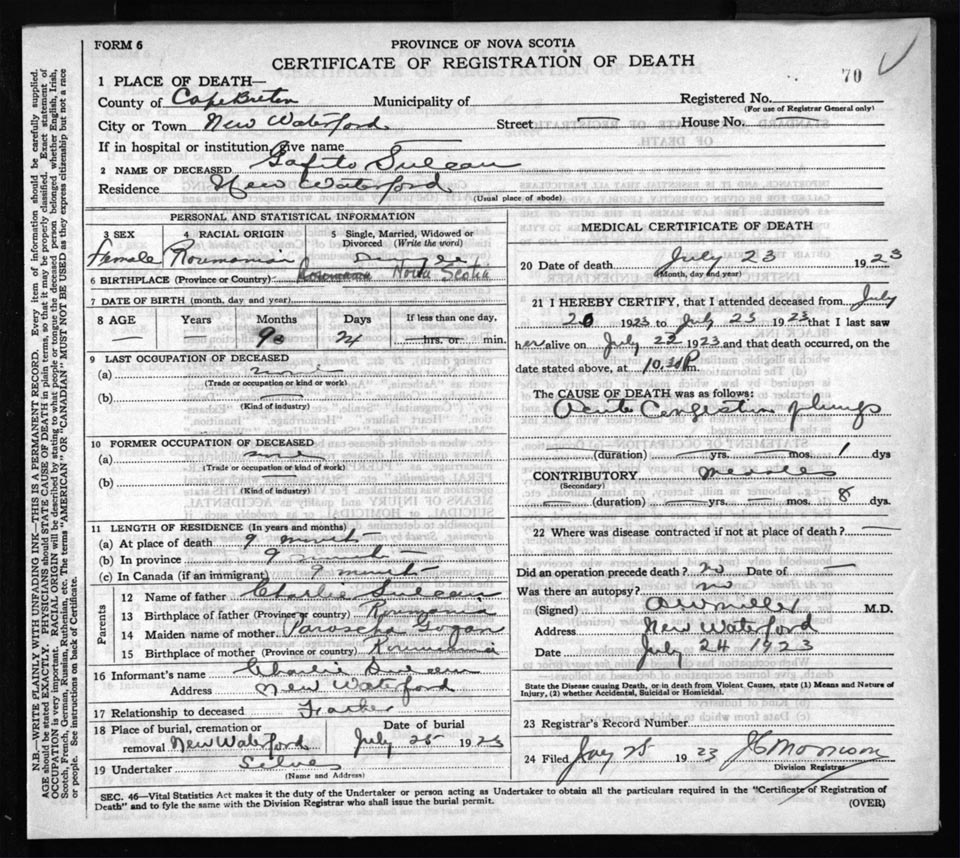 FORM 6
PROVINCE OF NOVA SCOTIA
CERTIFICATE OF REGISTRATION OF DEATH
70
1 PLACE OF DEATH—
County of Cape Breton Municipality of
Registered No.
(For use of Registrar General only)
City or Town New Waterford Street — House No. —
If in hospital or institution, give name
2 NAME OF DECEASED
Residence New Waterford
(Usual place of abode)
PERSONAL AND STATISTICAL INFORMATION
3 SEX 4 RACIAL ORIGIN 5 Single, Married, Widowed or Divorced (Write the word)
Female Roumanian Single
6 BIRTHPLACE (Province or Country) Nova Scotia
7 DATE OF BIRTH (month, day and year)
8 AGE Years Months Days If less than one day,
— 9 24 hrs. or min.
9 LAST OCCUPATION OF DECEASED
(a) none
(Trade or occupation or kind or work)
(b) —
(Kind of industry)
10 FORMER OCCUPATION OF DECEASED
(a) none
(Trade or occupation or kind of work)
(b) —
(Kind of industry)
11 LENGTH OF RESIDENCE (In years and months)
(a) At place of death 9
(b) In province 9
(c) In Canada (if an immigrant) 9
Parents
12 Name of father Charlie
13 Birthplace of father (Province or country) Roumania
14 Maiden name of mother
15 Birthplace of mother (Province or country) Roumania
16 Informant's name Charlie
Address New Waterford
17 Relationship to deceased Father
18 Place of burial, cremation or removal New Waterford Date of burial July 25 1923
19 Undertaker
(Name and Address)
MEDICAL CERTIFICATE OF DEATH
20 Date of death July 23 1923
(Month, day and year)
21 I HEREBY CERTIFY, that I attended deceased from July
20 1923 to July 23 1923 that I last saw
her alive on July 22 1923 and that death occurred, on the
date stated above, at 10. P m.
The CAUSE OF DEATH was as follows:
Acute Congestion of lungs
(duration) — yrs. — mos. 1 dys
CONTRIBUTORY Measles
(Secondary)
(duration) — yrs. — mos. 8 dys.
22 Where was disease contracted if not at place of death? —
Did an operation precede death? no Date of —
Was there an autopsy? no
(Signed) M.D.
Address New Waterford
Date July 24 1923
State the Disease causing Death, or in death from Violent Causes, state (1) Means and Nature of
Injury, (2) whether Accidental, Suicidal or Homicidal.
23 Registrar's Record Number
24 Filed 25 1923 J C Morrison
Division Registrar
SEC. 46—Vital Statistics Act makes it the duty of the Undertaker or person acting as Undertaker to obtain all the particulars required in the "Certificate of Registration of
Death" and to fyle the same with the Division Registrar who shall issue the burial permit.
(OVER)
N.B.—WRITE PLAINLY WITH UNFADING INK—THIS IS A PERMANENT RECORD. Every item of information should be carefully supplied.
AGE should be stated EXACTLY. PHYSICIANS should STATE CAUSE OF DEATH in plain terms, so that it may be properly classified. Exact statement of
OCCUPATION is very important. RACIAL ORIGIN will be described by stating to what people or tongue the deceased person belonged whether English, Irish,
Scotch, French, German, Russian, Ruthenian, etc. The terms "AMERICAN" OR "CANADIAN" MUST NOT BE USED as they express citizenship but not a race
or people. See instructions on back of Certificate.